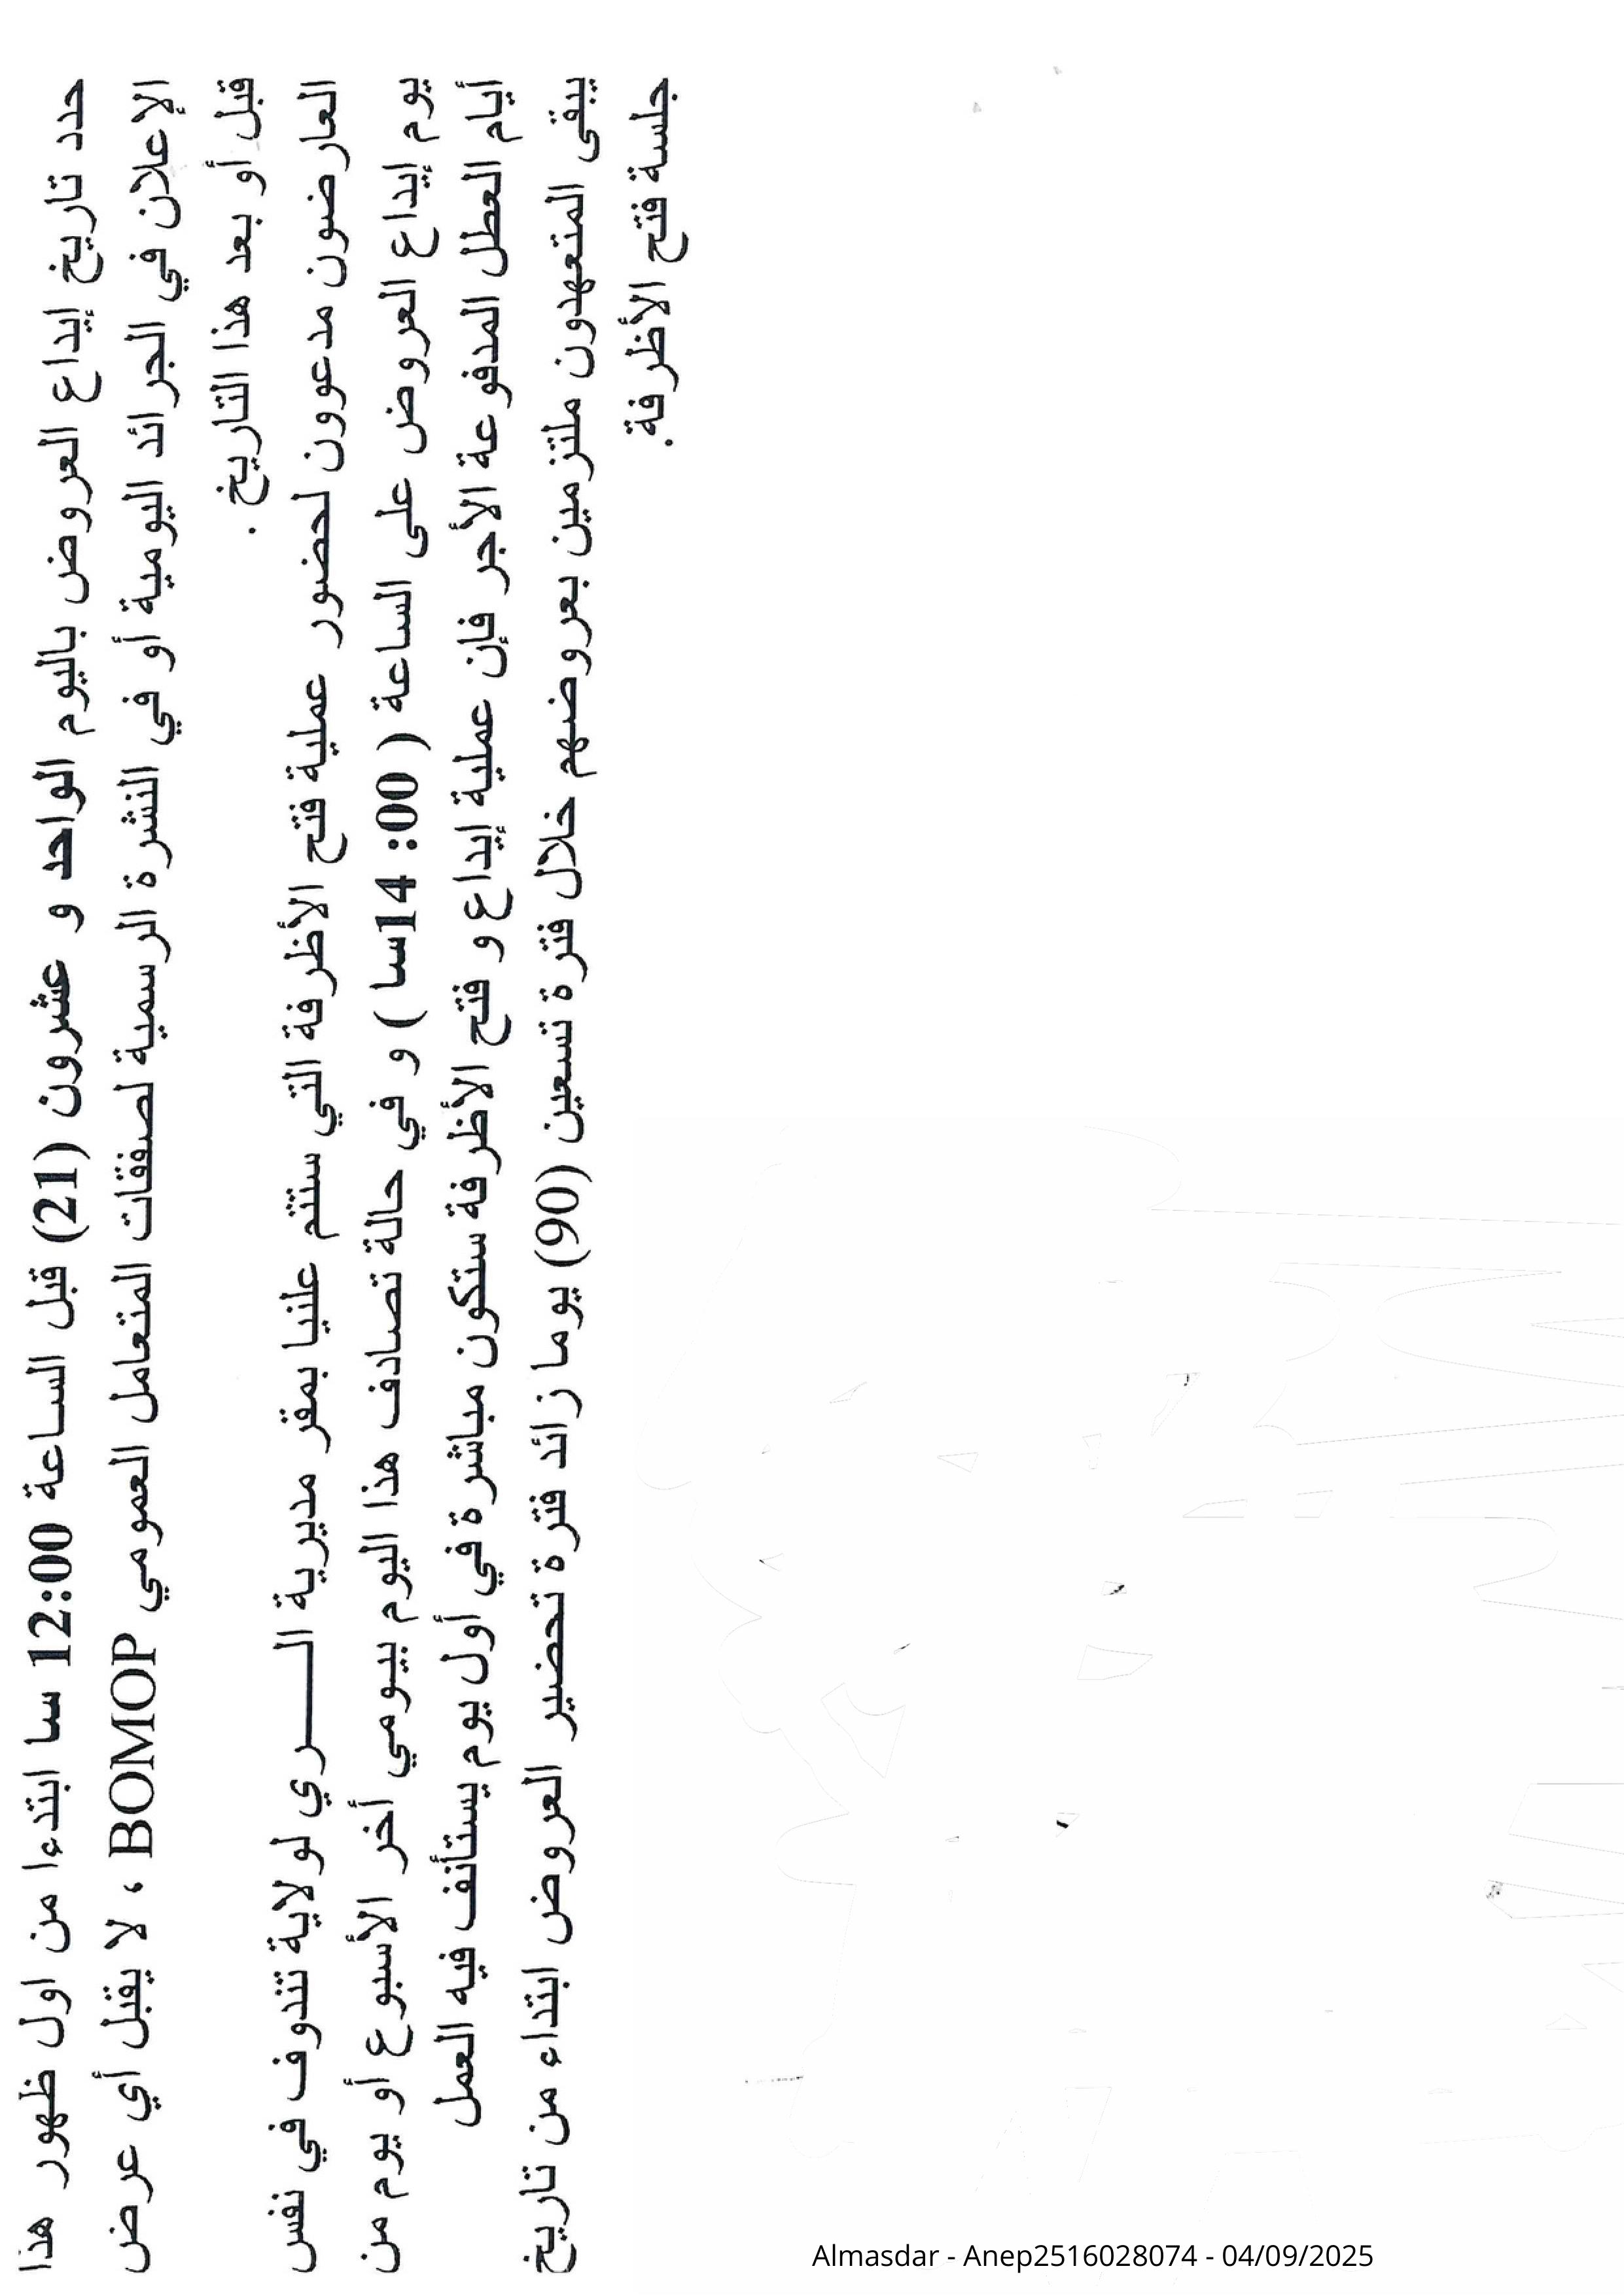 حدد تاريخ إيداع العروض باليوم الواحد و عشرون (21) قبل الساعة 12:00 سا ابتدءا من اول ظهور هذا
الإعلان في الجرائد اليومية أو في النشرة الرسمية لصفقات المتعامل العمومي BOMOP ، لا يقبل أي عرض
قبل أو بعد هذا التاريخ .
العارضون مدعوون لحضور عملية فتح الأظرفة التي ستتم علنيا بمقر مديرية الـــري لولاية تندوف في نفس
يوم إيداع العروض على الساعة ( 00: 14سا ) و في حالة تصادف هذا اليوم بيومي أخر الأسبوع أو يوم من
أيام العطل المدفوعة الأجر فإن عملية إيداع و فتح الأظرفة ستكون مباشرة في أول يوم يستأنف فيه العمل
يبقى المتعهدون ملتزمين بعروضهم خلال فترة تسعين (90) يوما زائد فترة تحضير العروض ابتداء من تاريخ
جلسة فتح الأظرفة.
Almasdar - Anep2516028074 - 04/09/2025